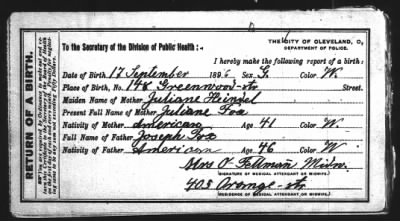 THE CITY OF CLEVELAND, O.,
DEPARTMENT OF POLICE.
To the Secretary of the Division of Public Health:
I hereby make the following report of a birth:
Date of Birth, 17 September 1896 Sex, F. Color W.
Place of Birth, No. 148 Greenwood str Street.
Maiden Name of Mother Juliane Heinzel
Present Full Name of Mother Juliane Fox
Nativity of Mother American Age 41 Color W.
Full Name of Father Joseph Fox
Nativity of Father American Age 46 Color W.
Mrs O Fettman Midw.
(SIGNATURE OF MEDICAL ATTENDANT OR MIDWIFE.)
403 Orange str
(RESIDENCE OF MEDICAL ATTENDANT OR MIDWIFE.)
RETURN OF A BIRTH.